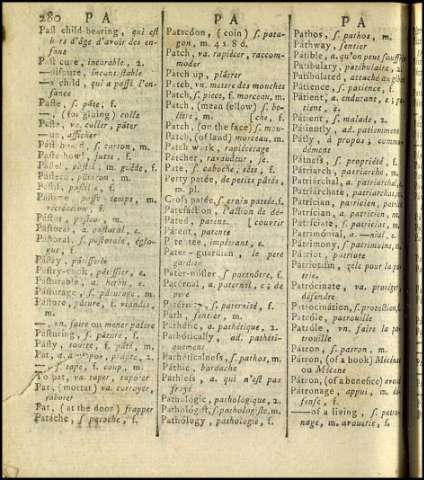 280 P A
Past child-bearing, qui est
hors d'âge d'avoir des en-
fans
Past cure, incurable, 2.
—dispute, incontestable
—a child, qui a passé l'en-
fance
Paste, s. pâte, f.
—, (for gluing) colle
Paste, va. coller, pâter
—up, afficher
s. carton, m.
jatte, f.
Pastel, pastel, m. guède, f.
m.
Pastil, pastille, f.
Pastime, passe-temps, m.
récréation, f.
Pastor, pasteur, m.
Pastoral, a. pastoral, e.
Pastoral, s. pastorale, églo-
gue, f.
Pastry, pâtisserie
Pastry-cook, pâtissier, e.
Pasturable, a. herbu, e.
Pasturage, s. pâturage, m.
Pasture, pâture, f. viandis,
m.
—, vn. faire ou mener paître
Pasturing, s. pâture, f.
Pasty, tourte, f. pâté, m.
Pat, a. à propos, propre, 2.
—, s. tape, f. coup, m.
To pat, va. taper, tapoter
Pat, (mortar) va. corroyer,
raboter
Pat, (at the door) frapper
Patache, s. patache, f.
P A
Patacoon, (coin) s. pata-
gon, m. 4s 8d.
Patch, va. rapiécer, raccom-
moder
Patch up, plâtrer
Patch, vn. mettre des mouches
Patch, s. piece, f. morceau, m.
Patch, (mean fellow) s. be-
litre, m. [che, f.
Patch, (on the face) s. mou-
Patch, (of land) morceau, m.
Patch work, rapiécetage
Patcher, ravaudeur, se.
Pate, s. caboche, tête, f.
Petty patée, de petits pâtés,
m. pl.
Patefaction, l'action de dé-
Pated, patent. [couvrir
Patent, patente
Patentee, impétrant, e.
Pater-guardian, le pere
gardien
Pater-noster, s. patenôtre, f.
Paternal, a. paternel, e; de
pere
Paternity, s. paternité, f.
Path, sentier, m.
Pathétic, a. pathétique, 2.
Pathétically, ad. pathéti-
quement
Pathéticalness, s. pathos, m.
Pathic, bardache
Pathless, a. qui n'est pas
frayé
Pathologic, pathologique, 2.
Pathologist, s. pathologiste, m.
Pathology, pathologie, f.
P A
Pathos, s. pathos, m.
Pathway, sentier
Patible, a. qu'on peut souffrir
Patibulary, patibulaire, 2.
Patibulated, attaché au gibet
Patience, s. patience, f.
Patient, a. endurant, e; pa-
tient, 2.
Patient, s. malade, 2.
Patiently, ad. patiemment
Patly, à propos; commo-
dément
Patness, s. propriété, f.
Patriarch, patriarche, m.
Patriarchal, a. patriarchal, e.
Patriarchate, patriarchat, m.
Patrician, patricien, patri-
Patrician, a. patricien,
Patriciate, s. patriciat, m.
Patrimonial, a. —nial, 2.
Patrimony, s. patrimoine, m.
Patriot, patriote
Patriotism, zèle pour la pa-
trie,
Patrocinate, va. protéger,
défendre
Patrocination, s. protection, f.
Patrole, patrouille
Patrole, vn. faire la pa-
trouille
Patron, s. patron, m.
Patron, (of a book) Mécénas
ou Mécene
Patron, (of a benefice) avoué
Patronage, appui, m. dé-
fense, f.
—of a living, s. patro-
nage, m. avouerie, f.